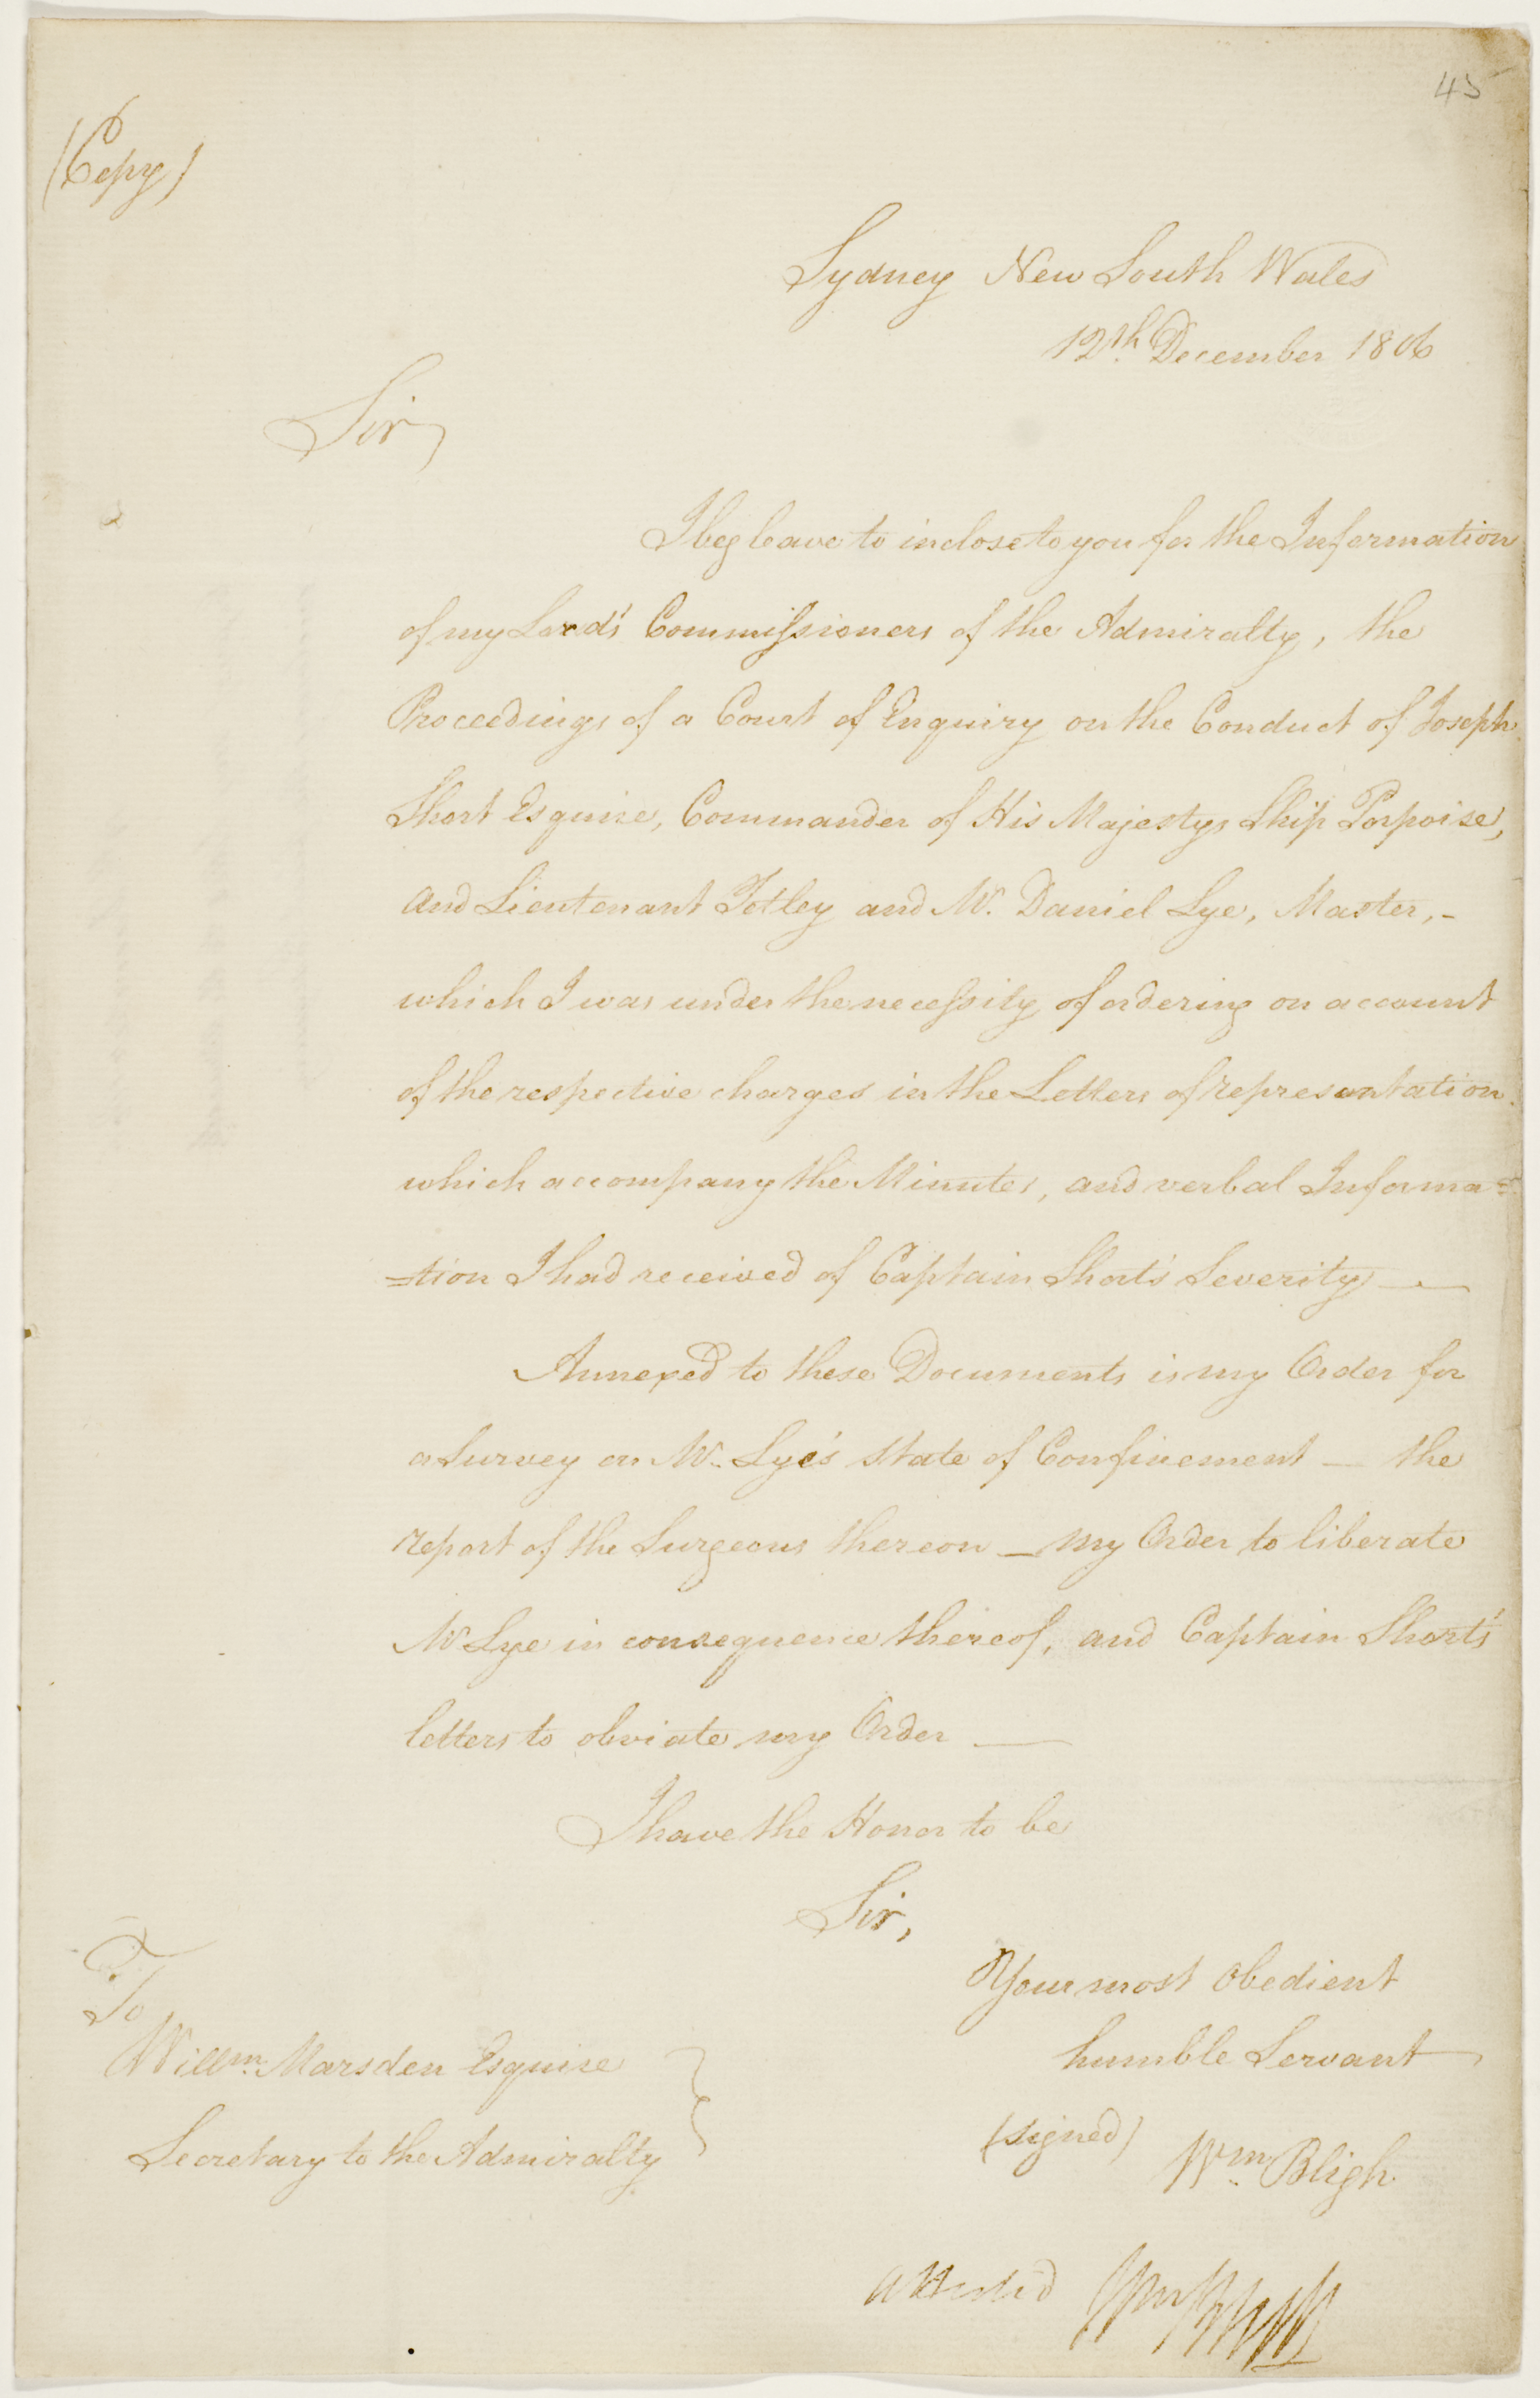 45
(Copy)
Sydney New South Wales
12th December 1806
Sir,
I beg leave to inclose to you for the Information
of my Lord's Commissioners of the Admiralty, the
Proceedings of a Court of Enquiry on the Conduct of Joseph
Short Esquire, Commander of His Majestys Ship Porpoise,
and Lieutenant Tetley and Mr. Daniel Lye, Master, -
which I was under the necessity of ordering on account
of the respective charges in the Letters of representation
which accompany the Minutes, and verbal Informa=
=tion I had received of Captain Short's Severity —
Annexed to these Documents is my Order for
a Survey on Mr. Lye's state of Confinement — the
report of the Surgeons thereon — my Order to liberate
Mr Lye in consequence thereof, and Captain Short's
letters to obviate my Order —
I have the Honor to be
Sir,
Your most obedient
humble Servant
(signed) Wm. Bligh
To
Willm. Marsden Esquire
Secretary to the Admiralty
attested Wm Bligh